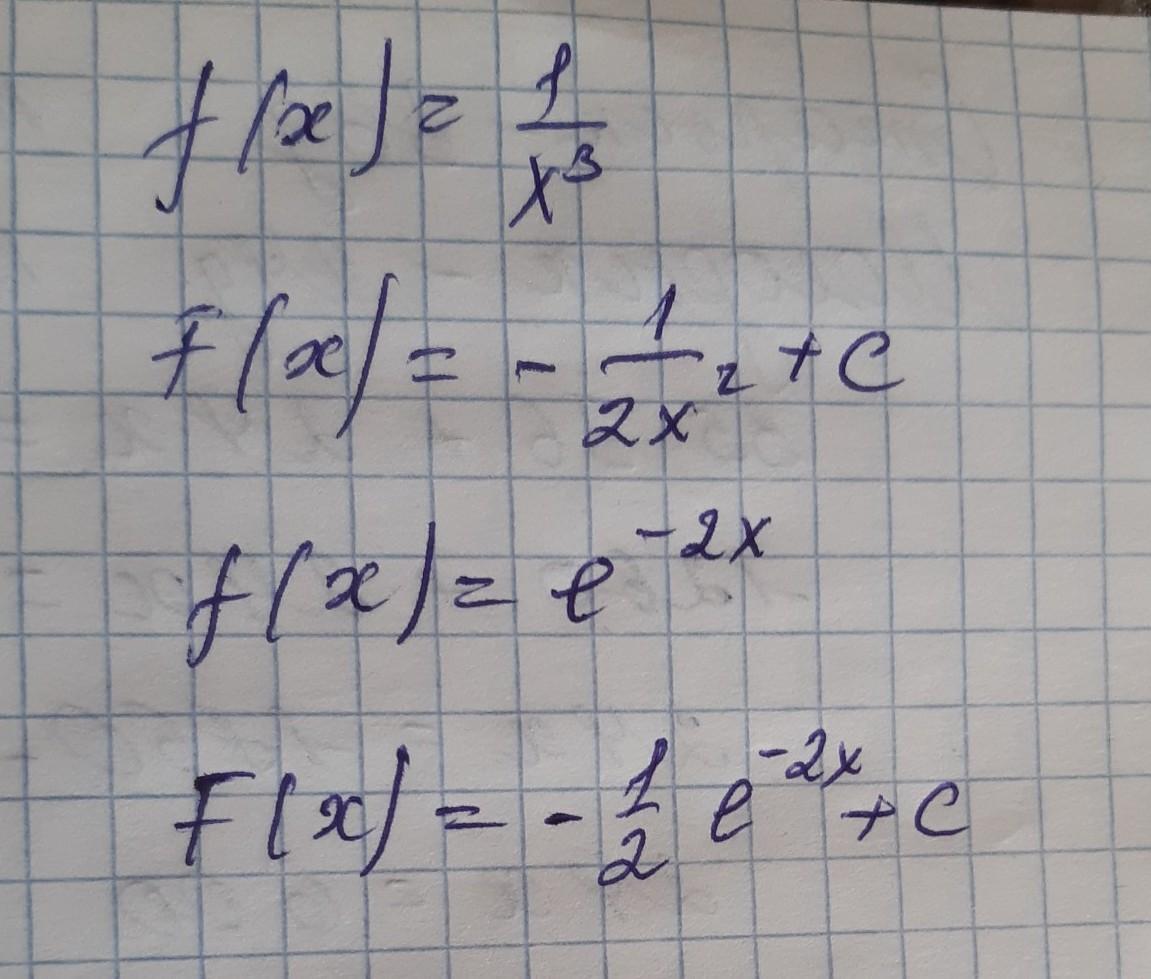 f(x) = 1/x³
F(x) = - 1/2x² + C
f(x) = e^{-2x}
F(x) = - 1/2 e^{-2x} + C